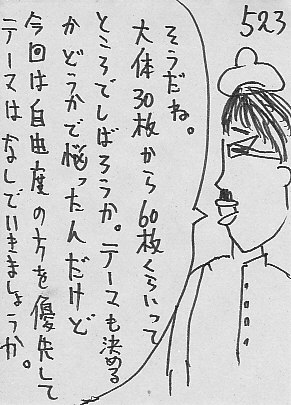 523
そうだね。
大体30枚から60枚くらいって
ところでしばろうか。テーマも決める
かどうかで悩ったんだけど
今回は自由度の方を優先して
テーマはなしでいきましょうか。